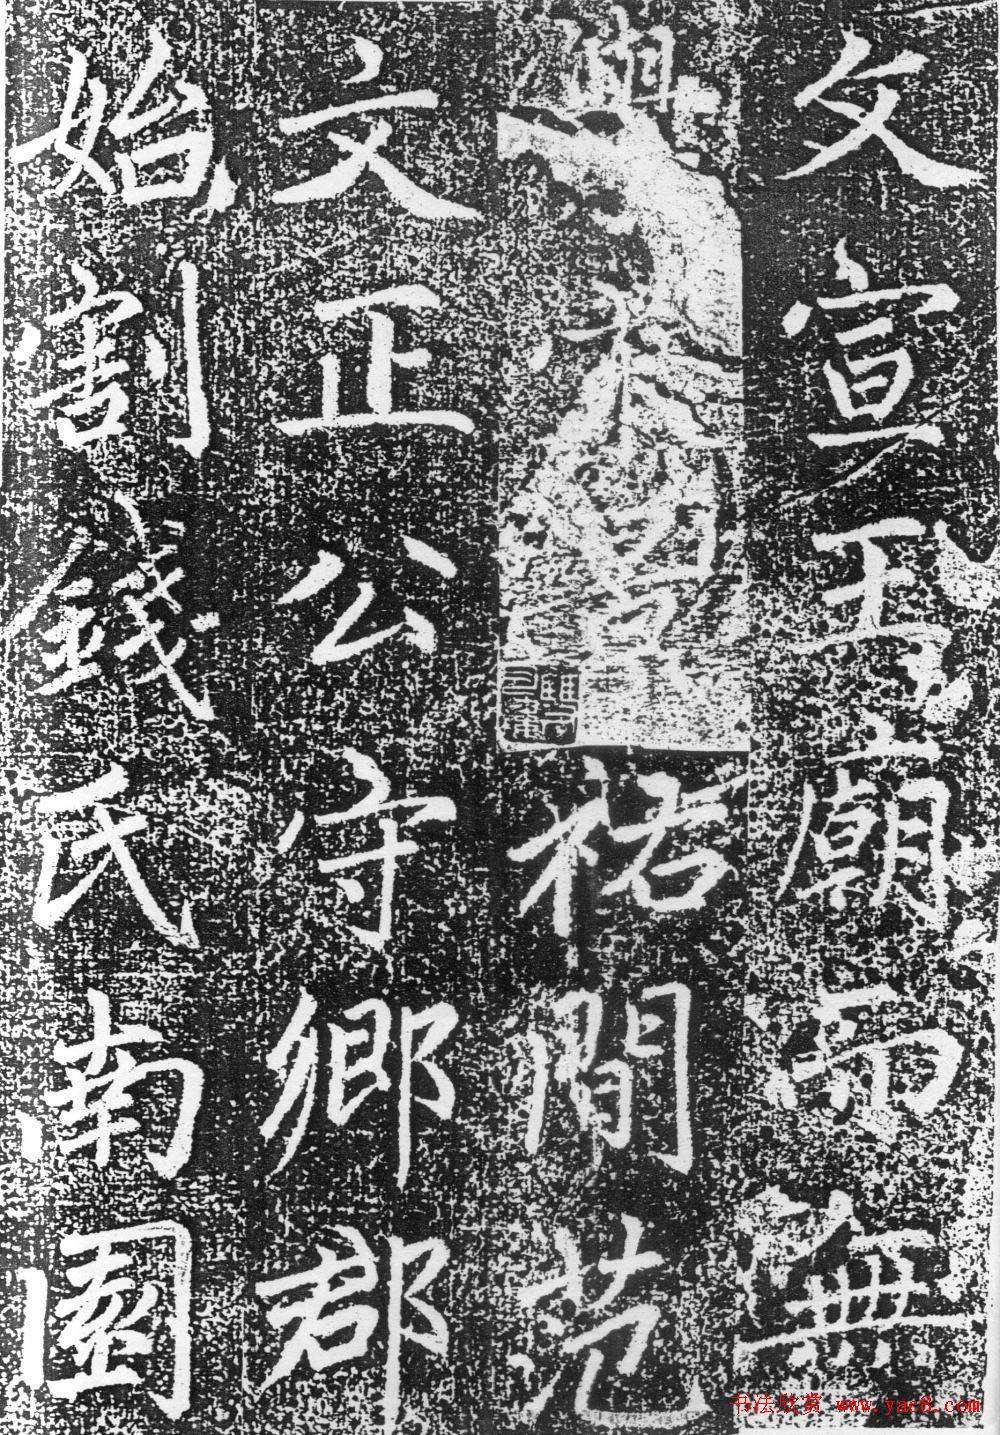 文宣王廟而無
學景祐間范
文正公守鄉郡
始割錢氏南園
书法欣赏 www.yac8.com